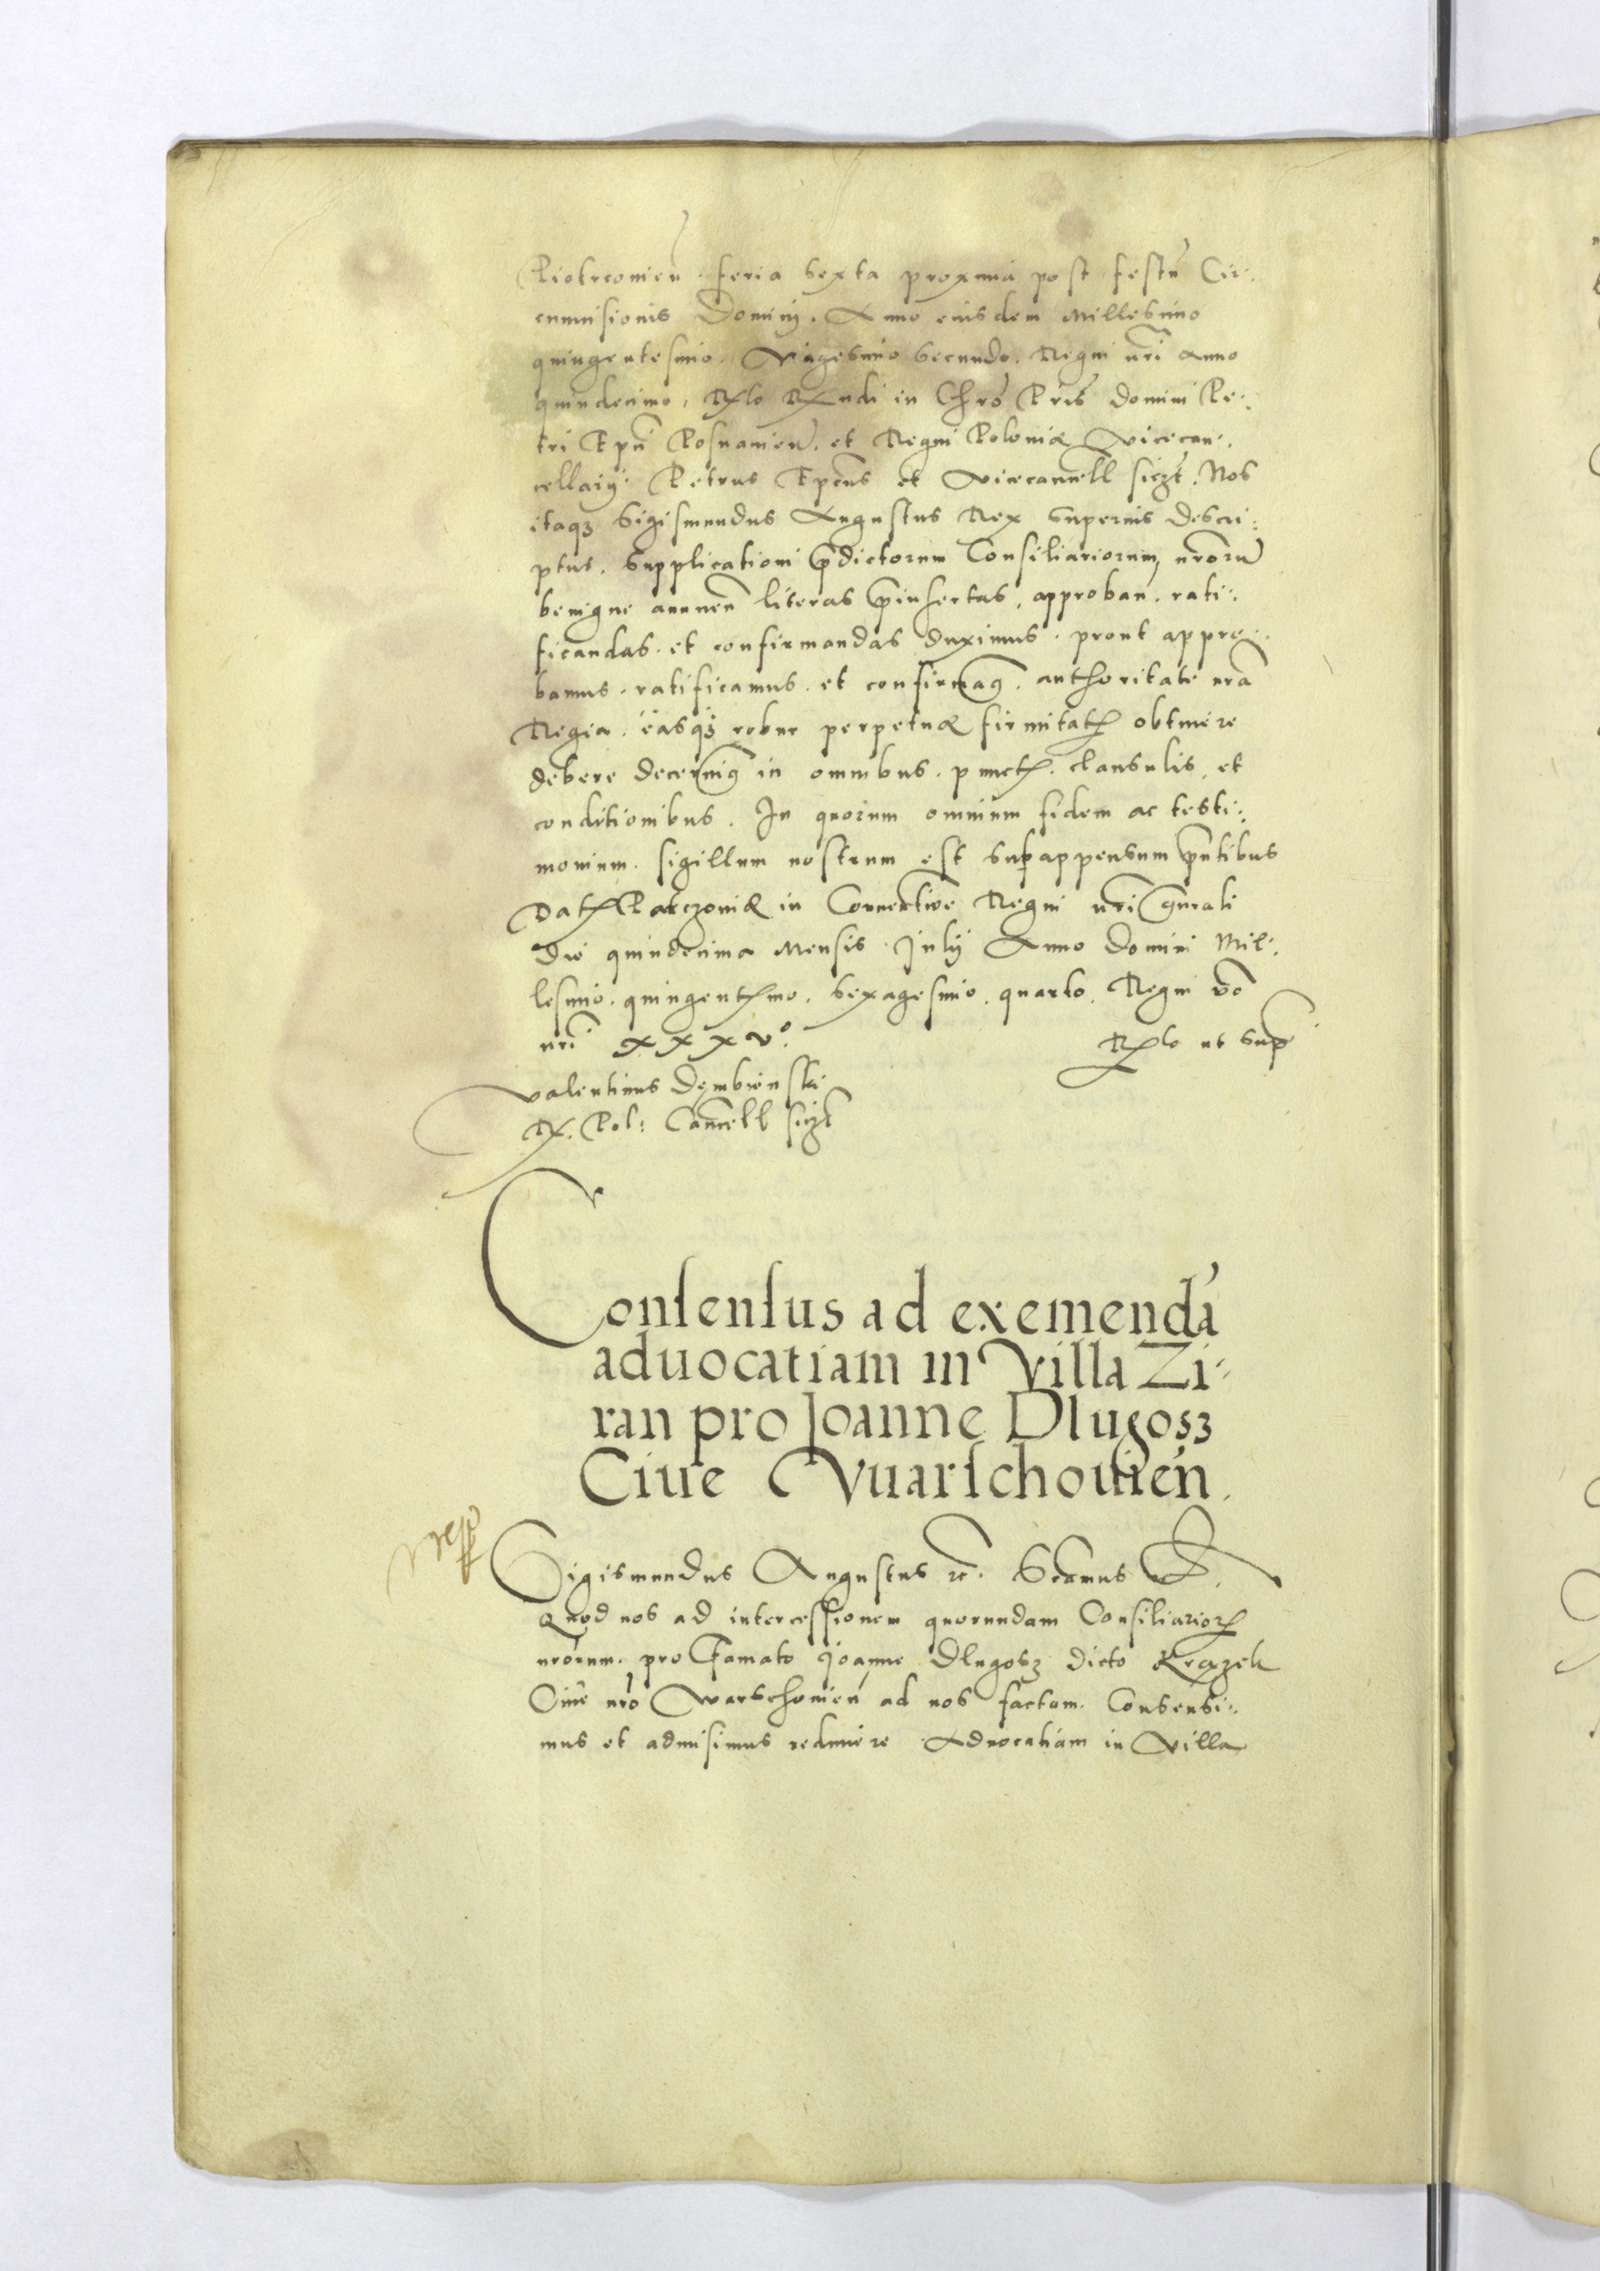 Piotrcovien̄. feria sexta proxima post festū Cir-
cumcisionis Domini. Anno eiusdem Millesimo
quingentesimo. Vigesimo secundo. Regni nr̄i anno
quindecimo, Rlō Rndi in Chrō Pr̄is Domini Pe-
tri Epī Posnanien̄. et Regni Poloniæ Vicecan-
cellarij. Petrus Epc̄us et Vicecancell sszt. Nos
itaq3 Sigismundus Augustus Rex supernis descri-
ptus. Supplicationi p̄dictorum Consiliariorum nr̄orū
benigne annuen̄ literas p̄insertas, approban̄. rati-
ficandas. et confirmandas duximus. prout appro-
bamus. ratificamus. et confirmamꝰ. authoritate nr̄a
Regia. easq3 robur perpetuæ firmitatꝭ obtinere
debere decernimꝰ in omnibus. punctꝭ. clausulis, et
conditionibus. In quorum omnium fidem ac testi-
monium. sigillum nostrum est subappensum pn̄tibus
Datꝭ Parczoviæ in Conventiōe Regni nr̄i gn̄rali
Die quindecima Mensis Julij Anno Domini Mil-
lesimo. quingentꝭmo. sexagesimo. quarto. Regni vō
nr̄i xxxvº.
Rlō ut supꝭ
Valentinus Dembienski
R. Pol: Cancell sszt
Consensus ad exemendā
aduocatiam in Villa Zi-
ran pro Joanne Dlugosz
Ciue Vuarschouien̄.
Sigismundus Augustus ꝛc̄. Sc̄amus ꝛc.
Quod nos ad intercessionem quorundam Consiliariorꝝ
nr̄orum. pro Famato Joanne Dlugosz dicto Krczek
Ciue nr̄o Warschouien̄ ad nos factam. Consensi-
mus et admisimus redimere Aduocatiam in Villa